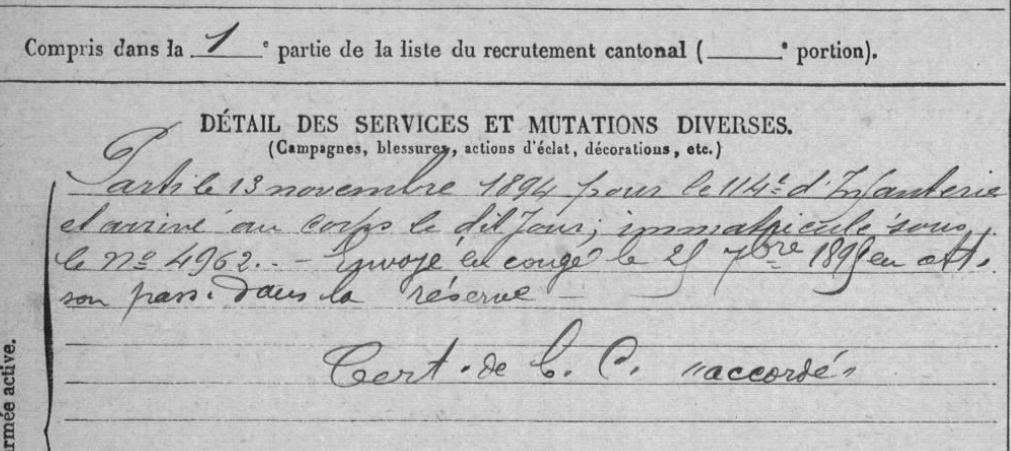 Compris dans la 1 e partie de la liste du recrutement cantonal ( e portion).
DÉTAIL DES SERVICES ET MUTATIONS DIVERSES.
(Campagnes, blessures, actions d'éclat, décorations, etc.)
Parti le 13 novembre 1894 pour le 114e d'Infanterie
et arrivé au corps le dit jour, immatriculé sous
le No 4962. - Envoyé en congé le 25 7bre 1895 en att.
son pass. dans la réserve -
Cert. de B. C. "accordé"
rmée active.